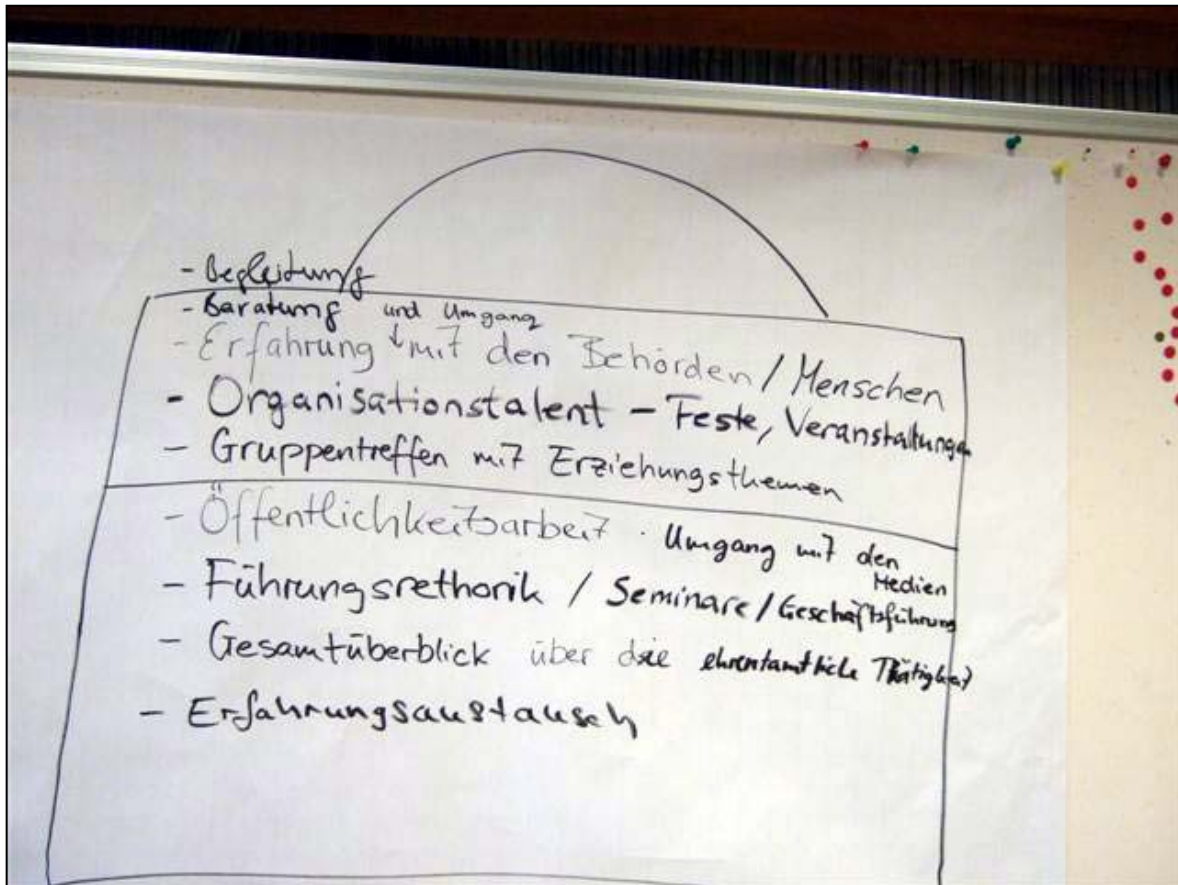 - Begleitung
- Baratung und Umgang
- Erfahrung ↓ mit den Behörden / Menschen
- Organisationstalent - Feste, Veranstaltungen
- Gruppentreffen mit Erziehungsthemen
- Öffentlichkeitsarbeit . Umgang mit den Medien
- Führungsrethorik / Seminare / Geschäftsführung
- Gesamtüberblick über die ehrentamtliche Thätigkeit
- Erfahrungsaustausch